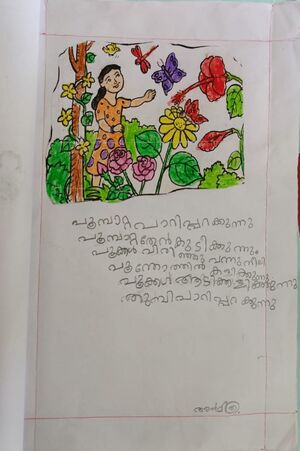 പൂമ്പാറ്റ പാറിപ്പറക്കുന്നു
പൂമ്പാറ്റ തേൻ കുടിക്കുന്നു
പൂക്കൾ വിരിഞ്ഞു വന്നു നിന്നു
പൂന്തോത്തിൽ കളിക്കുന്നു
പൂക്കൾ ആടിക്കളിക്കുന്നു
തുമ്പി പാറിപ്പറക്കുന്നു